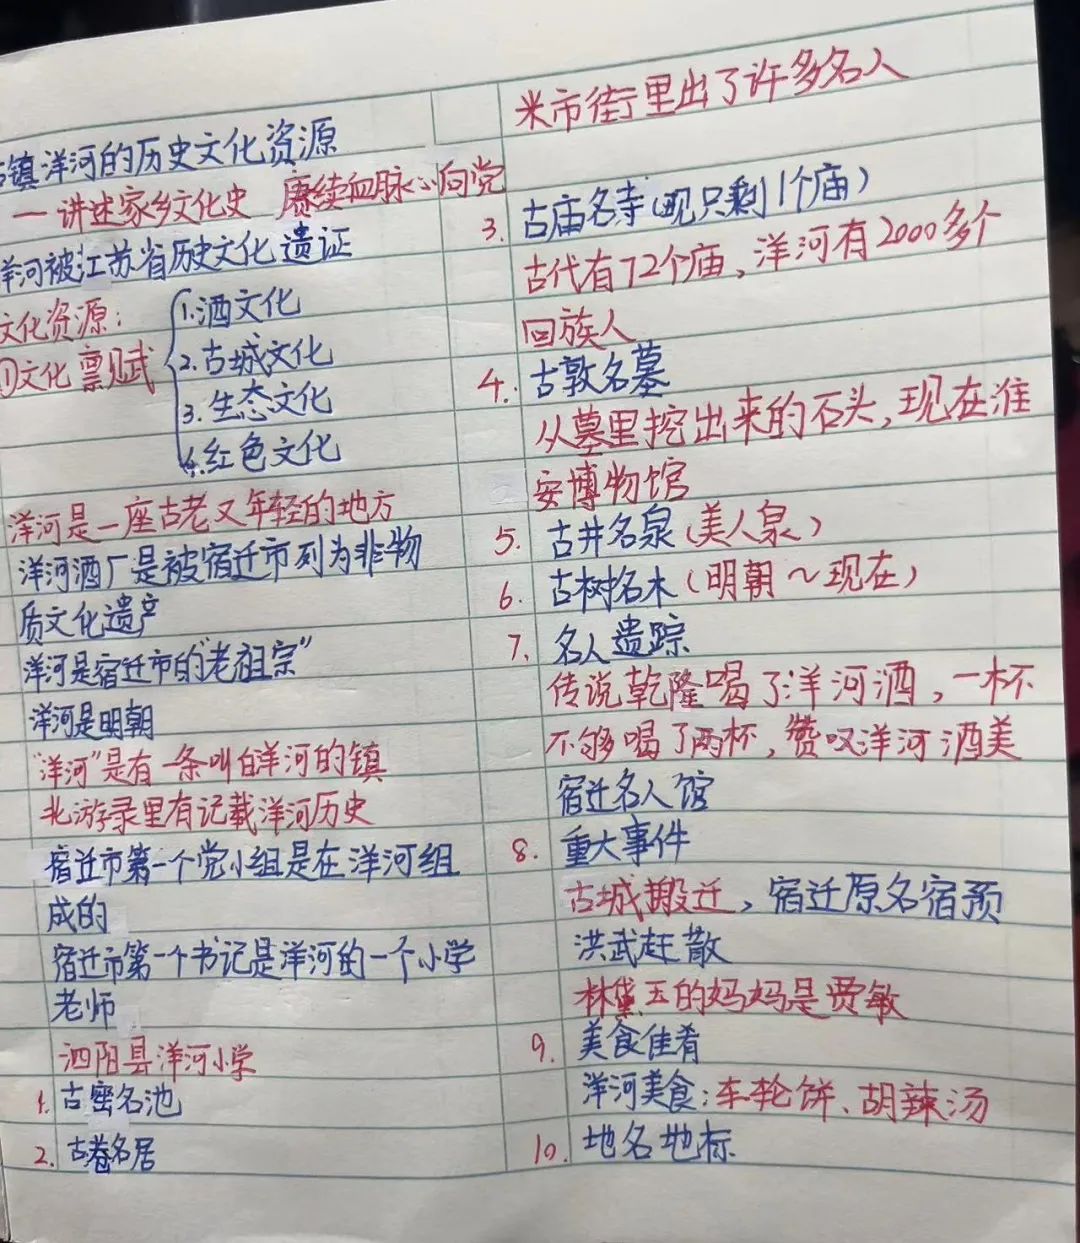 古镇洋河的历史文化资源
一讲述家乡文化史 赓续血脉心向党
洋河被江苏省历史文化遗证
文化资源：
①文化禀赋
1.酒文化
2.古城文化
3.生态文化
4.红色文化
洋河是一座古老又年轻的地方
洋河酒厂是被宿迁市列为非物
质文化遗产
洋河是宿迁市的"老祖宗"
洋河是明朝
"洋河"是有一条叫白洋河的镇
北游录里有记载洋河历史
宿迁市第一个党小组是在洋河组
成的
宿迁市第一个书记是洋河的一个小学
老师
泗阳县洋河小学
1. 古窖名池
2. 古巷名居
米市街里出了许多名人
3. 古庙名寺(现只剩1个庙)
古代有72个庙，洋河有2000多个
回族人
4. 古敦名墓
从墓里挖出来的石头，现在淮
安博物馆
5. 古井名泉(美人泉)
6. 古树名木(明朝～现在)
7. 名人遗踪
传说乾隆喝了洋河酒，一杯
不够喝了两杯，赞叹洋河酒美
宿迁名人馆
8. 重大事件
古城搬迁，宿迁原名宿预
洪武赶散
林黛玉的妈妈是贾敏
9. 美食佳肴
洋河美食：车轮饼、胡辣汤
10. 地名地标